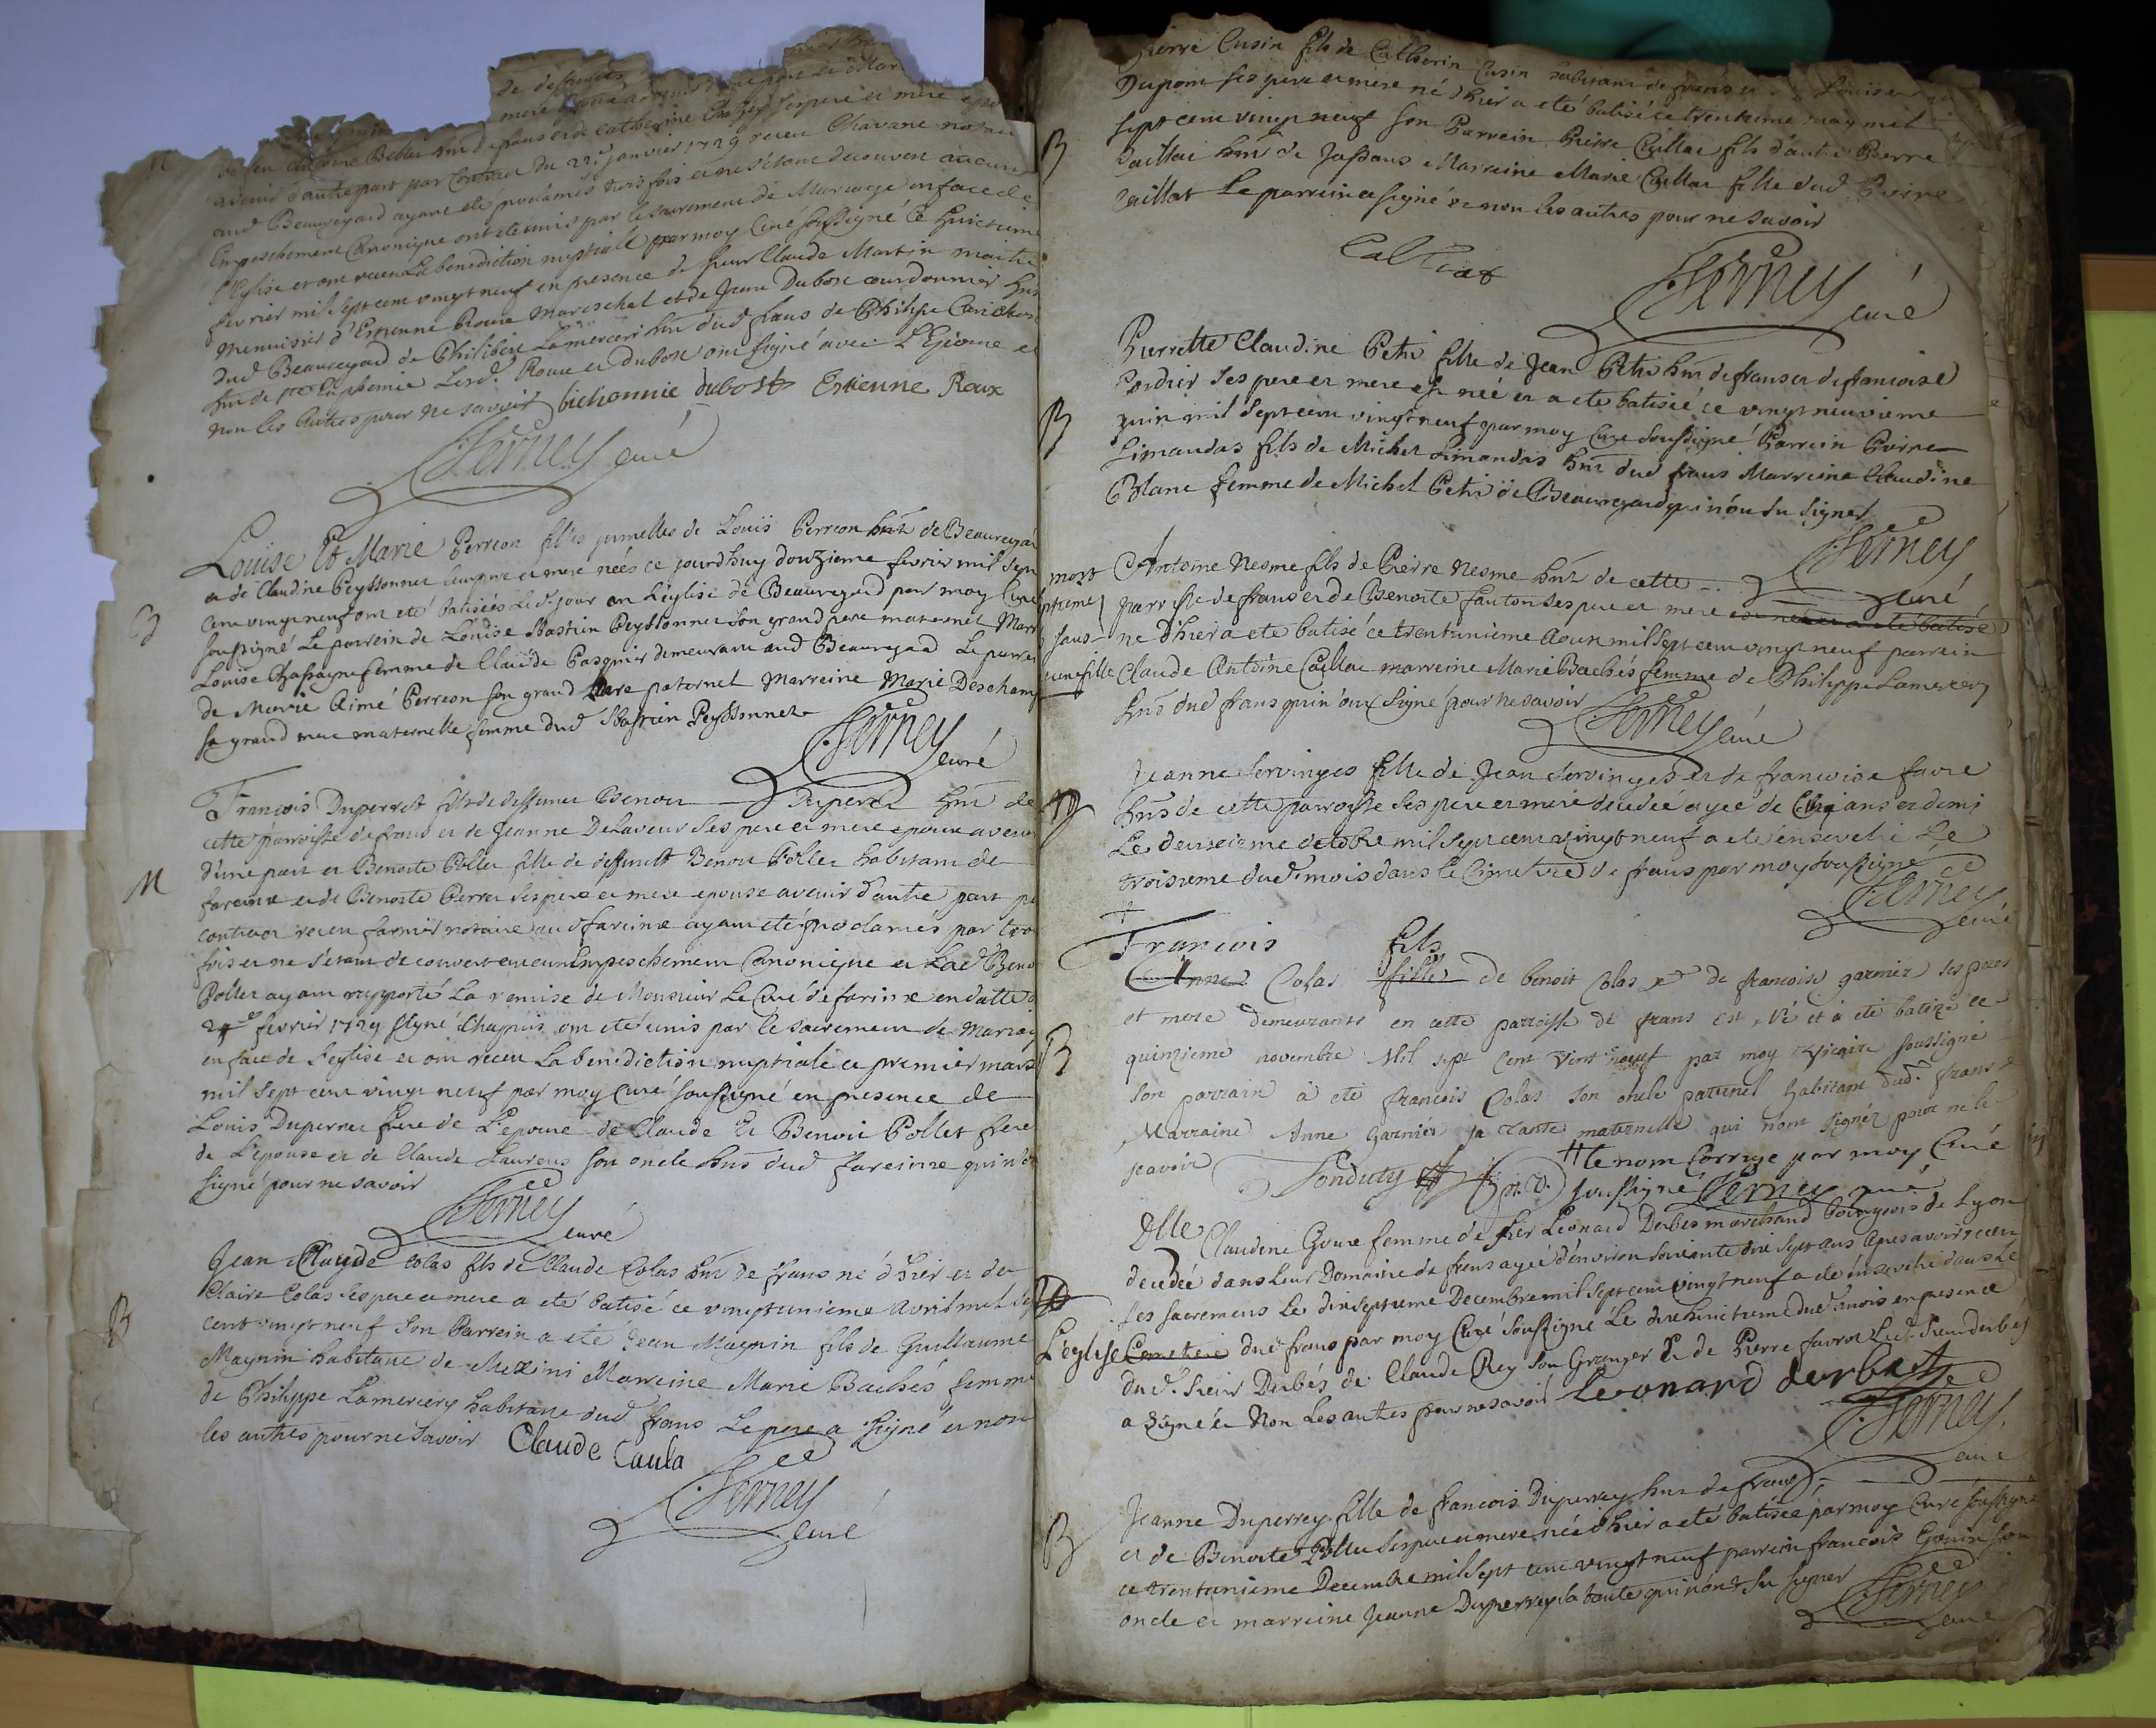 de deffunct
M
avenir d'autre part par Contrat du 22e janvier 1729 receu Chavane notaire
aud Beauregard ayant eté proclamés trois fois et ne s'étant decouvert aucun
Empeschement Canonique ont eté unis par le sacrement de Mariage en face de
l'Eglise et ont receu La benediction nuptiale par moy Curé soussigné ce huictieme
fevrier mil sept cent vingt neuf en presence de sieur Claude Martin maitre
menuisier d'Estienne Roux mareschal et de Jean Dubost courdonnier
dud Beauregard de Philibert Lamercery hnt dud frans de Philipe
non les autres pour ne savoir bichonnie dubost Estienne Roux
Ferney curé
B
Louise Et Marie Perreon filles jumelles de Louis Perreon hnt de Beauregar
et de Claudine Peyssonnel leur pere et mere nées ce jourdhuy douzieme fevrier mil sept
cent vingt neuf ont eté batisées led. jour en L'église de Beauregard par moy Curé
soussigné Le parrein de Louise Bastien Peyssonnel son grand pere maternel Marr
Louise Chassagne femme de Claude Pasquier demeurant aud Beauregard Le parrei
de Marie Aimé Perreon son grand Pere paternel Marreine Marie Descham
sa grand mere maternelle femme dud Bastien Peyssonnel
Ferney curé
M
François Duperret fils de deffunct Benoit Duperret hnt de
cette parroisse de frans et de Jeanne DeLaveur ses pere et mere epoux avenir
d'une part et Benoite Pollet fille de deffunct Benoit Pollet habitant de
fareinx et de Benoite Perret ses pere et mere epouse avenir d'autre part
contract receu farnier notaire aud fareinx ayant eté proclamés par trois
fois et ne s'etant decouvert aucun Empeschement Canonique et Lad Beno
Pollet ayant rapporté La remise de Monsieur Le Curé de fareinx en datte
24e fevrier 1729 signé Chapuis ont eté unis par le sacrement de Mariag
en face de l'eglise et ont receu La benediction nuptiale ce premier mars
mil sept cent vingt neuf par moy curé soussigné en presence de
Louis Duperret frere de L'epoux de Claude Et Benoit Pollet frere
de L'epouse et de Claude Laurens son oncle hns dud fareinx qui n'
signé pour ne savoir
Ferney curé
B
Jean Claude Colas fils de Claude Colas hnt de frans né d'hier et de
Claire Colas ses pere et mere a eté batisé ce vingtunieme avril mil se
cent vingt neuf son Parrein a eté Jean Magnin fils de Guillaume
Magnin habitant de Meximi Marreine Marie Bachés femme
de Philippe Lamercery habitant dud frans Le pere a signé et non
les autres pour ne savoir Claude Caula
Ferney curé
Pierre Cusin fils de Catherin Cusin habitant de frans et de Louise
Dupont ses pere et mere né d'hier a eté batisé ce trentieme may mil
B
sept cent vingt neuf son Parrein Pierre Caillat fils d'autre Pierre
Caillat hnt de Jassans Marreine Marie Caillat fille dud Pierre
Caillat Le parrein a signé et non les autres pour ne savoir
Calliat
Ferney curé
B
Pierrette Claudine Petit fille de Jean Petit hnt de frans et de francoise
Cordier ses pere et mere est née et a eté batisée ce vingt neuvieme
juin mil sept cent vingt neuf par moy Curé soussigné Parrein Pierre
Limandas fils de Michel Limandas hnt dud frans Marreine Claudine
Blanc femme de Michel Petit de Beauregard qui n'ont su signer
Ferney curé
Antoine Nesme fils de Pierre Nesme hnt de cette
parroisse de frans et de Benoite fanton ses pere et mere est né et a eté batisé
né d'hier a eté batisé ce trentunieme Aoust mil sept cent vingt neuf parrein
Claude Antoine Caillat marreine Marie Bachés femme de Philippe Lamercery
hns dud frans qui n'ont signé pour ne savoir
Ferney curé
Jeanne Servinges fille de Jean Servinges et de francoise favre
hns de cette parroisse ses pere et mere decedée agée de cinq ans et demi
Le deuxieme octobre mil sept cent vingt neuf a eté ensevelie Le
troisieme dud. mois dans le Cimetiere de frans par moy soussigné
Ferney curé
François fils
B
Anne Colas fille de benoit Colas et de francoise garnier ses peres
et mere demeurants en cette parroisse de frans est né et à eté batizé ce
quinzieme novembre Mil sept cent vint neuf par moy vicaire soussigné
son parrain à eté francois Colas son oncle paternel habitant dud. frans et
Marraine Anne garnier sa tante maternelle qui n'ont signéz pour ne le
scavoir Fonduty # le nom Corrige par moy Curé
soussigné Ferney curé
Dlle Claudine Goure femme de sier Leonard Derbes marchand Bourgeois de Lyon
decedée dans leur Domaine de frans agée d'environ soixante dix sept ans apres avoir receu
les sacremens Le dixseptieme Decembre mil sept cent vingt neuf a eté ensevelie dans Le
L'eglise Cimetiere dud frans par moy Curé soussigné Le dixhuictieme dud. mois en presence
dud. sieur Derbés de Claude Rey son Granger Et de Pierre favrot Led. sieur derbés
a signé et Non Les autres pour ne savoir Leonard derbes
Ferney curé
B
Jeanne Duperrey fille de francois Duperrey hnt de frans
et de Benoite Pollet ses pere et mere née d'hier a eté batisée par moy Curé soussigné
ce trentunieme Decembre mil sept cent vingt neuf parrein francois Gonin son
oncle et marreine Jeanne Duperrey sa tante qui n'ont su signer
Ferney curé